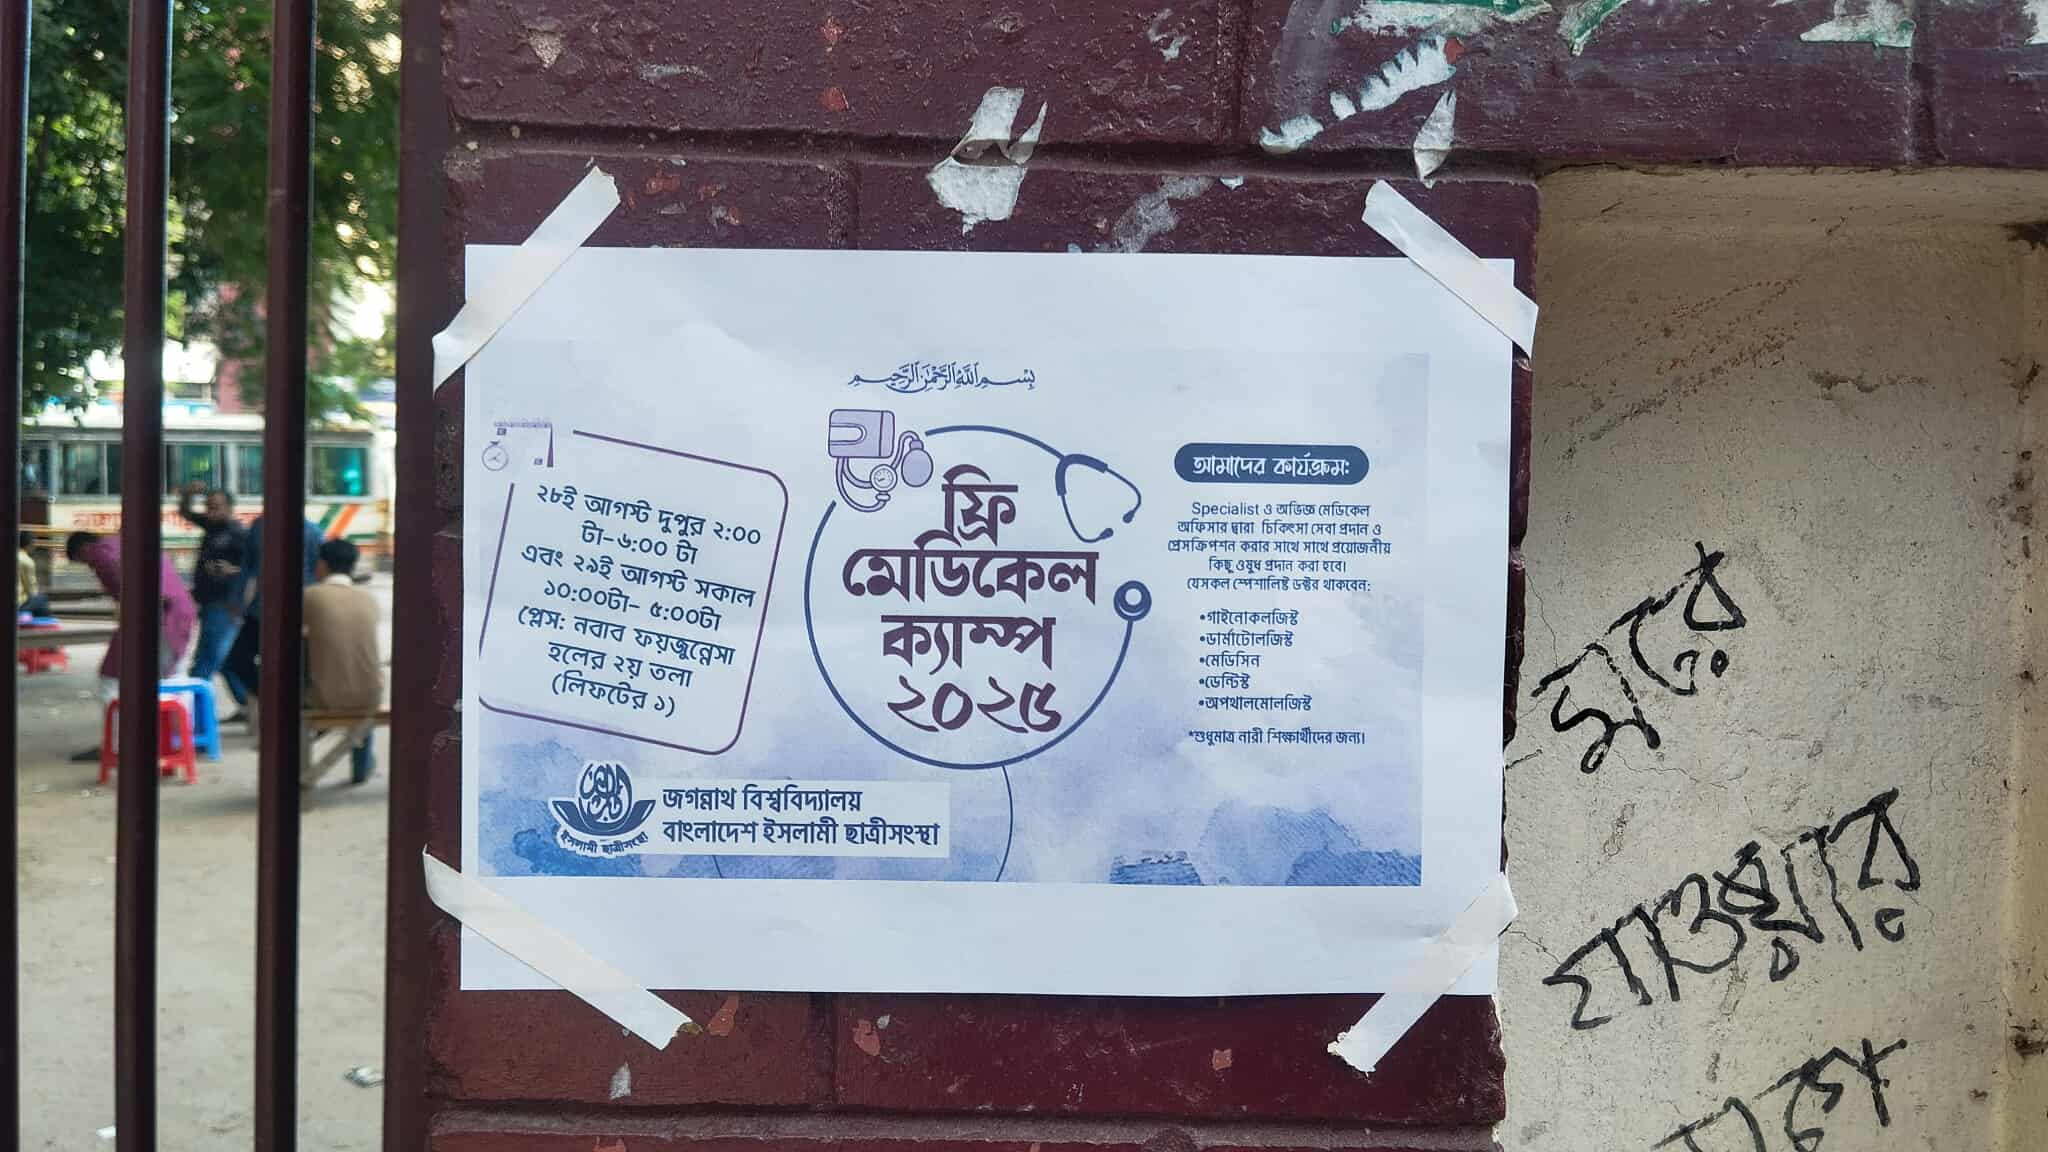 بسم الله الرحمن الرحيم
২৮ই আগস্ট দুপুর ২:০০
টা-৬:০০ টা
এবং ২৯ই আগস্ট সকাল
১০:০০টা- ৫:০০টা
প্লেস: নবাব ফয়জুন্নেসা
হলের ২য় তলা
(লিফটের ১)
ফ্রি
মেডিকেল
ক্যাম্প
২০২৫
আমাদের কার্যক্রম:
Specialist ও অভিজ্ঞ মেডিকেল
অফিসার দ্বারা চিকিৎসা সেবা প্রদান ও
প্রেসক্রিপশন করার সাথে সাথে প্রয়োজনীয়
কিছু ওষুধ প্রদান করা হবে।
যেসকল স্পেশালিষ্ট ডক্টর থাকবেন:
•গাইনোকলজিস্ট
•ডার্মাটোলজিস্ট
•মেডিসিন
•ডেন্টিস্ট
•অপথালমোলজিস্ট
*শুধুমাত্র নারী শিক্ষার্থীদের জন্য।
ইসলামী ছাত্রীসংস্থা
জগন্নাথ বিশ্ববিদ্যালয়
বাংলাদেশ ইসলামী ছাত্রীসংস্থা
যাওয়ার